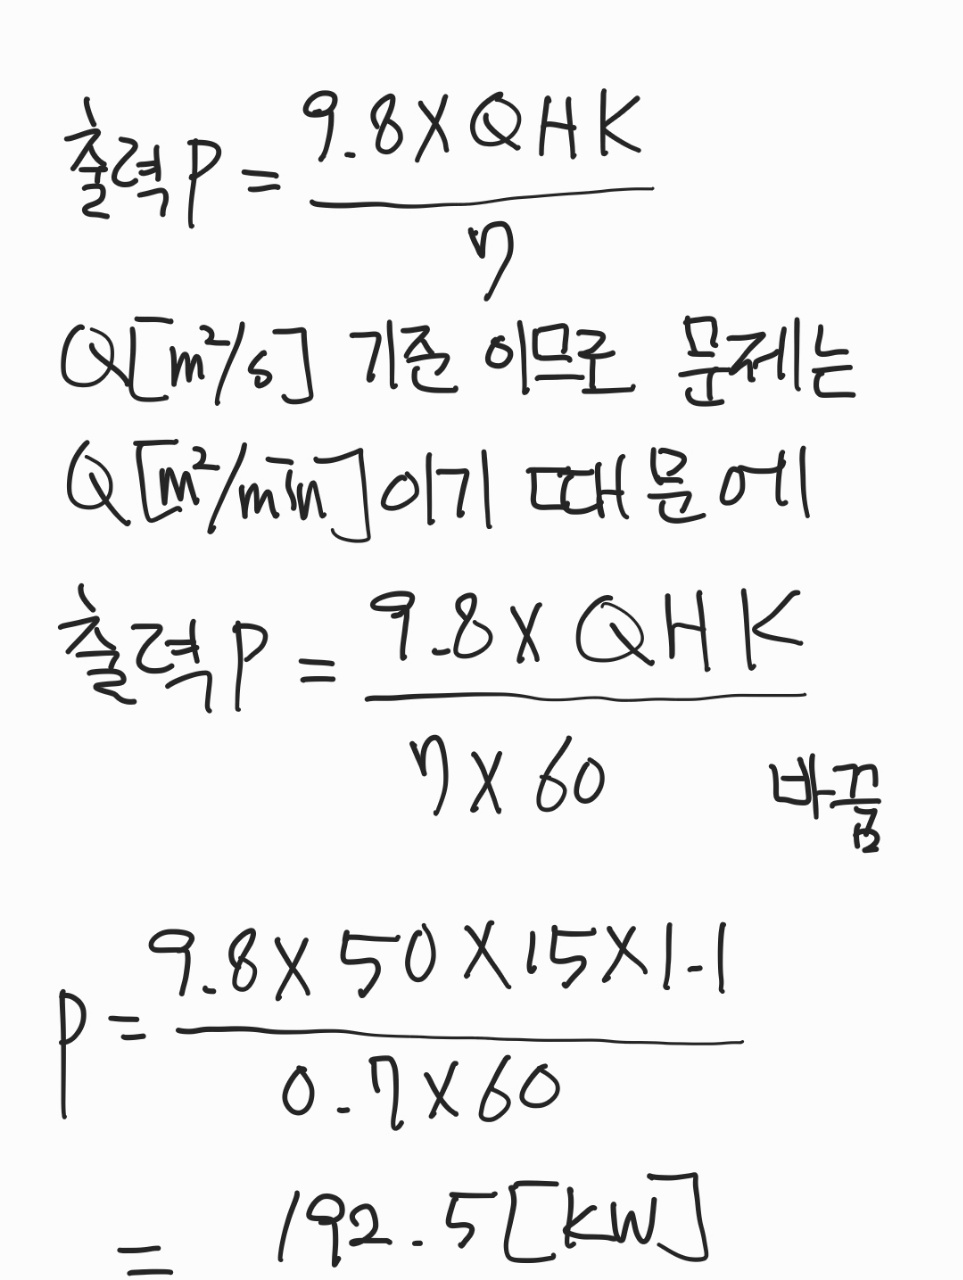 출력 P = 9.8 X QHK / η
Q[m²/s] 기준 이므로 문제는
Q[m²/min]이기 때문에
출력 P = 9.8 X QHK / η X 60
바꿈
P = 9.8 X 50 X 15 X 1.1 / 0.7 X 60
= 192.5 [kW]